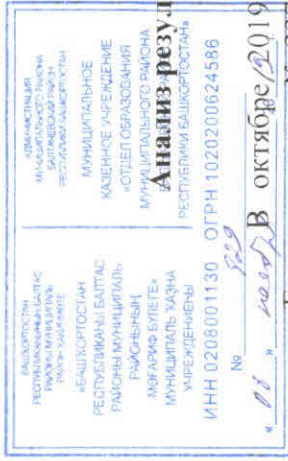 БАШКОРТОСТАН
РЕСПУБЛИКАҺЫНЫҢ БАЛТАС
РАЙОНЫ МУНИЦИПАЛЬ
РАЙОН ХАКИМИӘТЕ
«БАШКОРТОСТАН
РЕСПУБЛИКАҺЫ БАЛТАС
РАЙОНЫ МУНИЦИПАЛЬ
РАЙОНЫНЫҢ
МӘҒАРИФ БҮЛЕГЕ»
МУНИЦИПАЛЬ КАЗНА
УЧРЕЖДЕНИЕҺЫ
АДМИНИСТРАЦИЯ
МУНИЦИПАЛЬНОГО РАЙОНА
БАЛТАЧЕВСКИЙ РАЙОН
РЕСПУБЛИКИ БАШКОРТОСТАН
МУНИЦИПАЛЬНОЕ
КАЗЕННОЕ УЧРЕЖДЕНИЕ
«ОТДЕЛ ОБРАЗОВАНИЯ
МУНИЦИПАЛЬНОГО РАЙОНА
РЕСПУБЛИКИ БАШКОРТОСТАН»
Анализ резул
ИНН 0208001130 ОГРН 1020200624586
№ 829
В октябре 2019